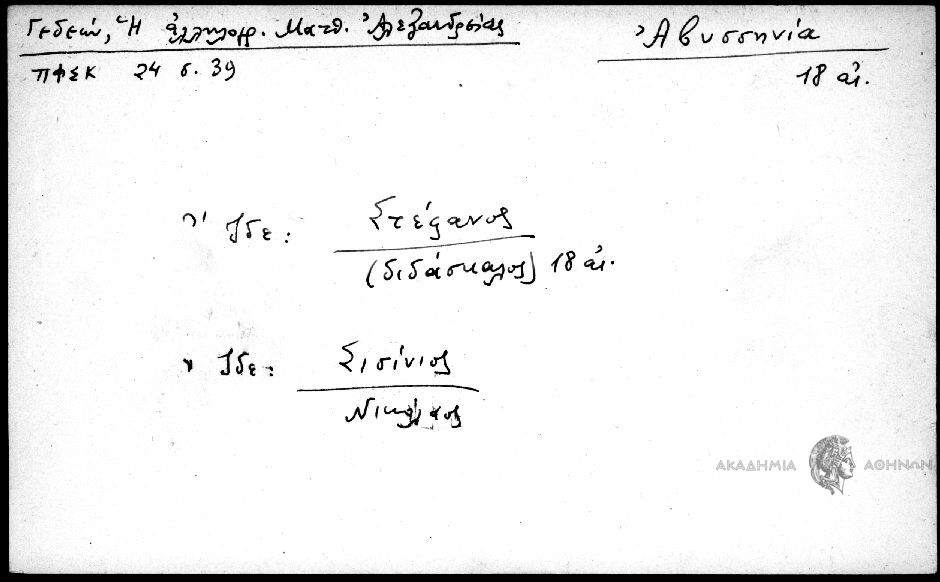 Γεδεών, Ἡ ἀλληλογρ. Ματθ. Ἀλεξανδρείας
Ἀβυσσηνία
ΠΦΣΚ 24 σ. 39
18 αἰ.
Ἴδε: Στέφανος
(διδάσκαλος) 18 αἰ.
Ἴδε: Σισίνιος
Νικόλαος
ΑΚΑΔΗΜΙΑ ΑΘΗΝΩΝ